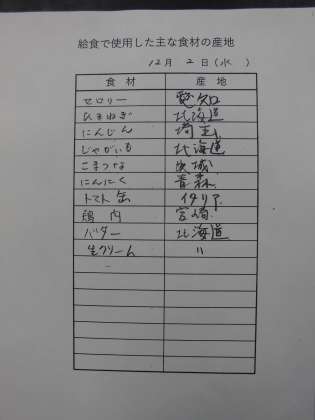 給食で使用した主な食材の産地
12月 2日(水 )
食材 産地
セロリー 愛知
たまねぎ 北海道
にんじん 埼玉
じゃがいも 北海道
こまつな 茨城
にんにく 青森
トマト缶 イタリア
鶏肉 宮崎
バター 北海道
生クリーム 〃